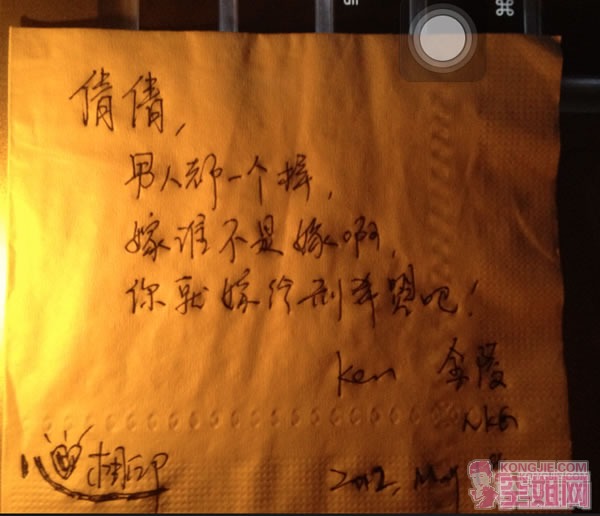 倩倩，
男人都一个样，
嫁谁不是嫁啊，
你就嫁给刘孝贤吧！
Ken 金陵
NKG
心相印
2012, May
KONGJIE.COM
空姐网